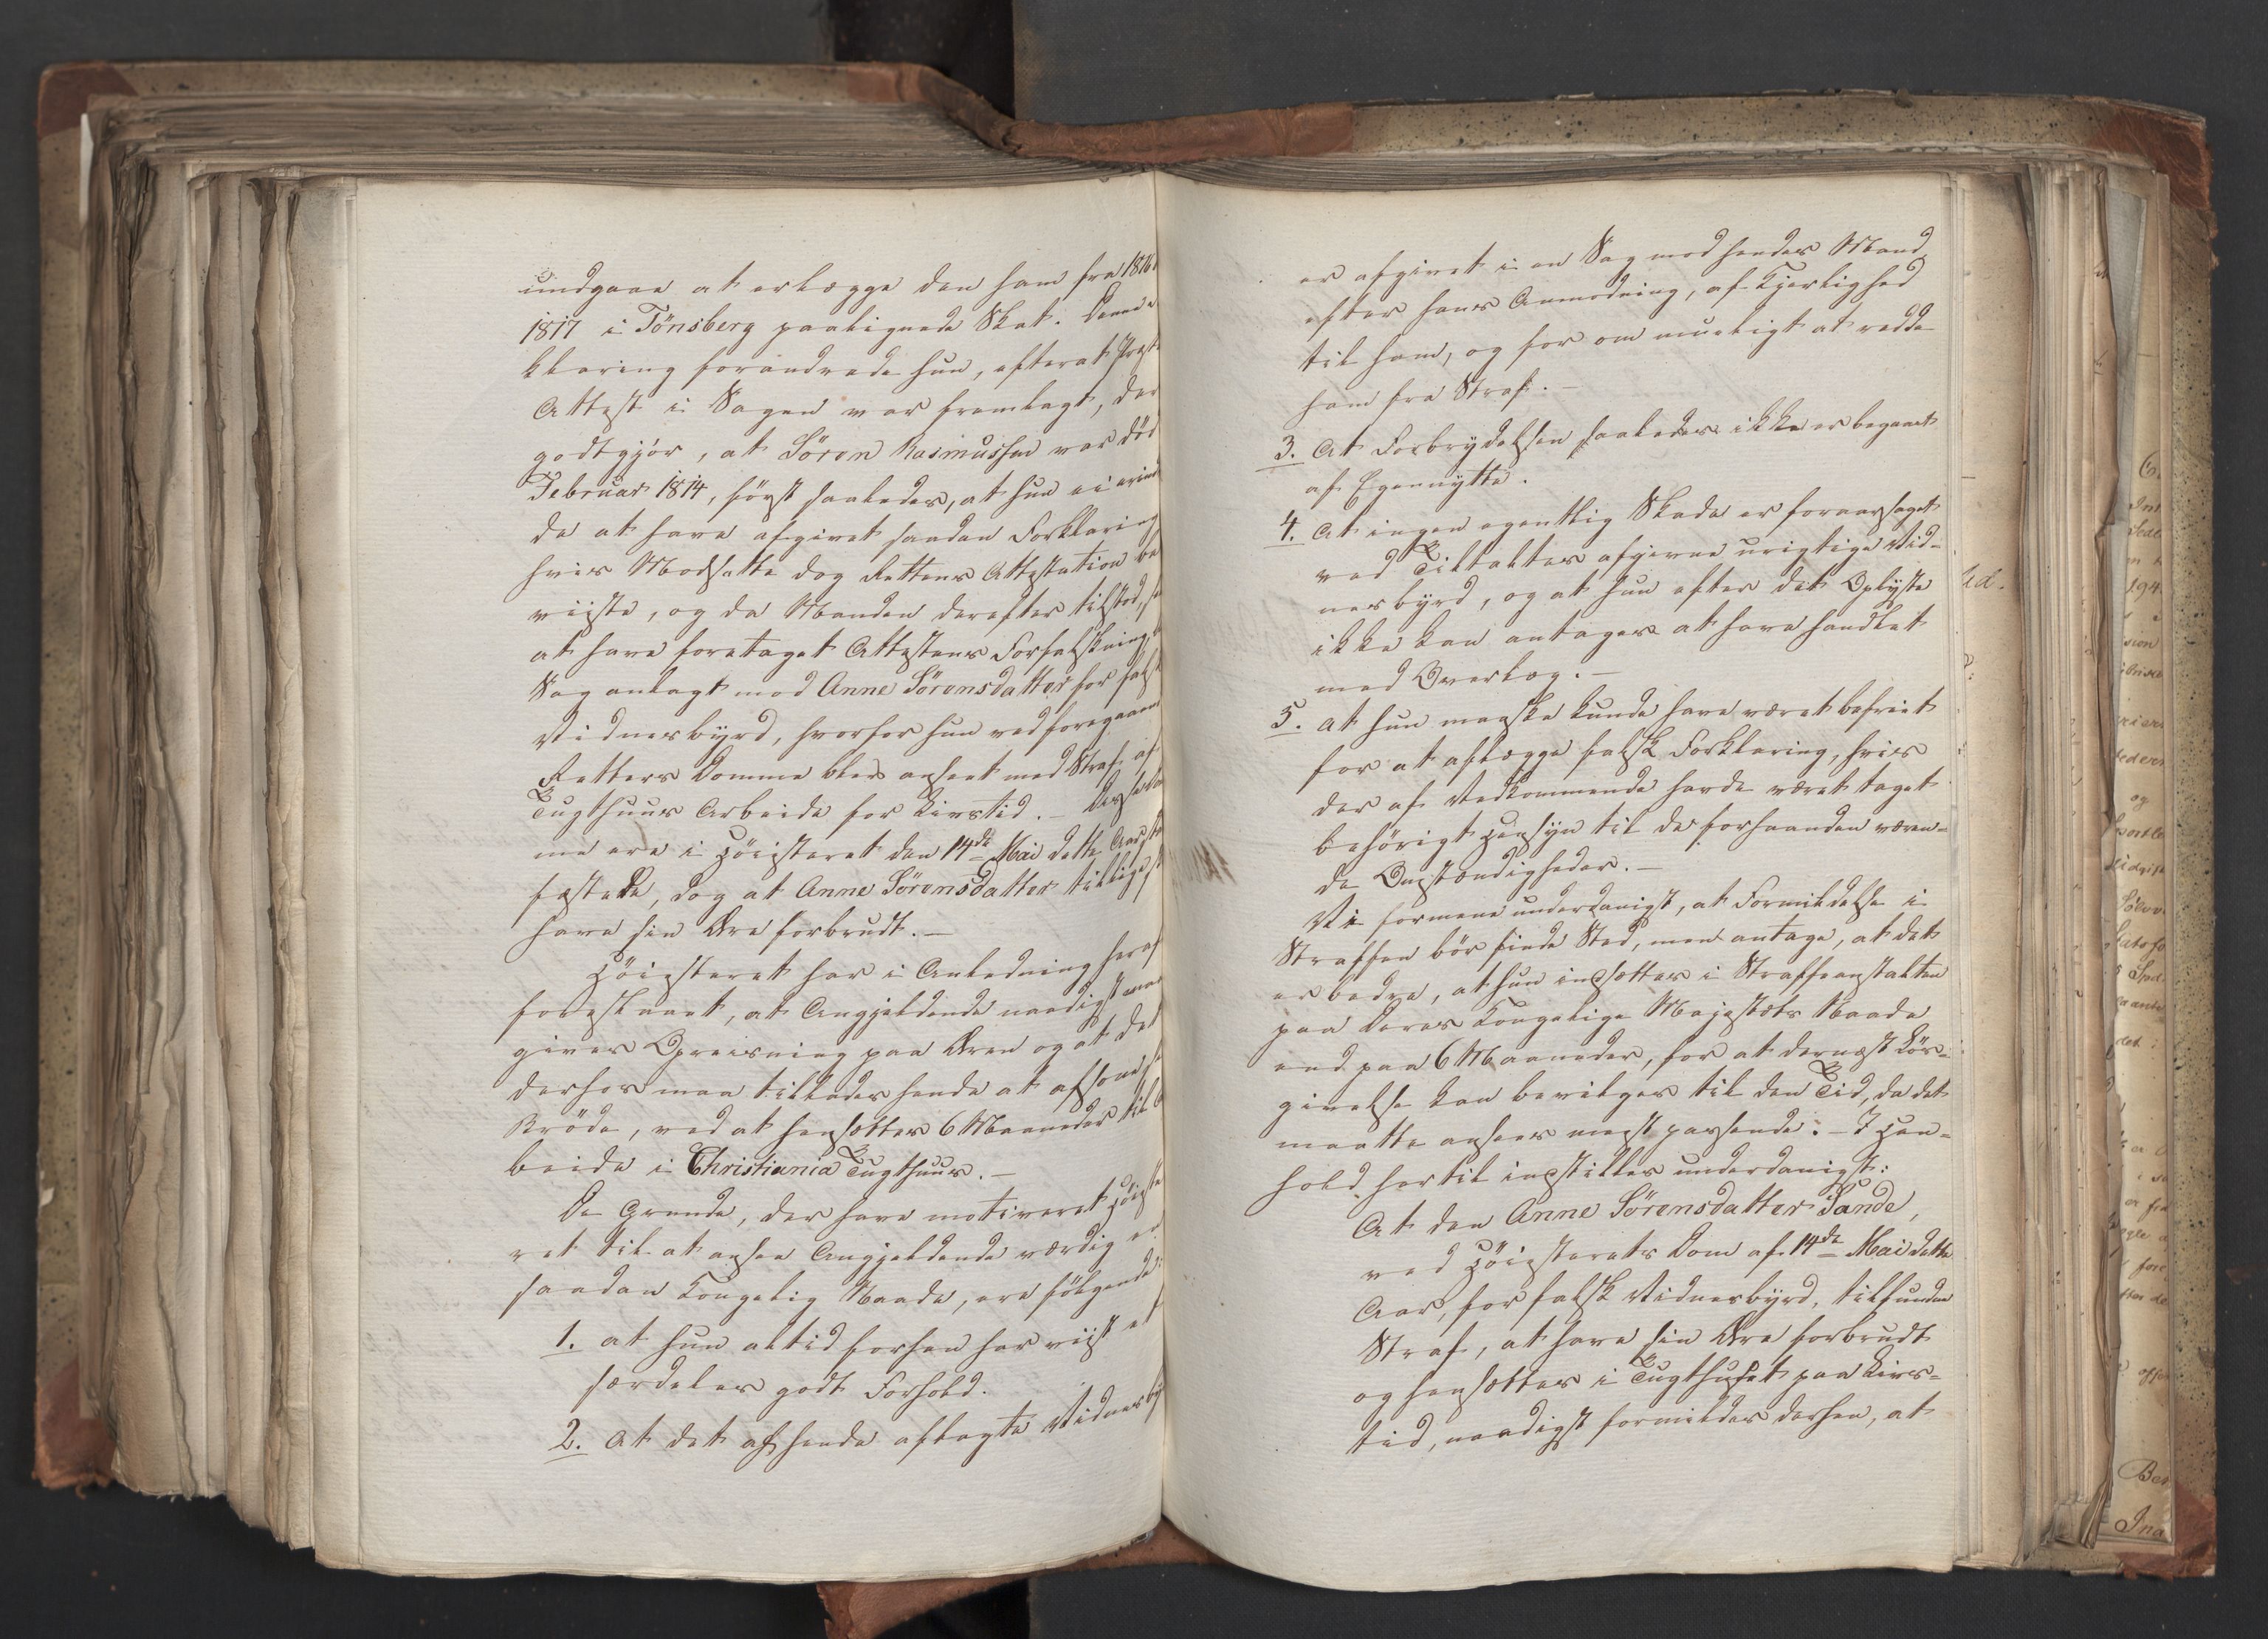 undgaae at erlægge den ham fra 1816
1817 i Tönsberg paalignede Skat. Denne
klaring forandrede hun, efterat Præste
Attest i Sagen var fremlagt, der
godtgjör, at Sören Rasmussen var död
Februar 1814, först saaledes, at hun ei erind
de at have afgivet saadan Forklaring
hvis Modsatte dog Rettens Attestation be
viiste, og da Manden derefter tilstod,
at have foretaget Attestens Forfalskning,
Sag anlagt mod Anne Sörensdatter for falsk
Vidnesbyrd, hvorfor hun ved foregaaende
Retters Domme blev anseet med Straf af
Tugthuus Arbeide for Livstid. – Disse Dom
me ere i Höiesteret den 14de Mai dette Aar
fæstede, dog at Anne Sörensdatter tillige
have sin Ære forbrudt. –
Höiesteret har i Anledning heraf
foreslaaet, at Angjeldende naadigst
gives Opreisning paa Æren og at det
derhos maa tillades hende at afsone
Bröde, ved at hensættes 6 Maaneder til
beide i Christiania Tugthuus. –
De Grunde, der have motiveret Höieste
ret til at ansee Angjeldende værdig
saadan Kongelig Naade, ere fölgende:
1. at hun altid forhen har viist et
særdeles godt Forhold.
2. At det af hende aflagte Vidnesby
er afgivet i en Sag mod hendes Mand
efter hans Anmodning, af Kjerlighed
til ham, og for om mueligt at redde
ham fra Straf. –
3. At Forbrydelsen saaledes ikke er begaaet
af Egennytte.
4. At ingen egentlig Skade er foraarsaget
ved Tiltaltes afgivne urigtige Vid-
nesbyrd, og at hun efter det Oplyste
ikke kan antages at have handlet
med Overlæg. –
5. at hun maaske kunde have været befriet
for at aflægge falsk Forklaring, hvis
der af Vedkommende havde været taget
behörigt Hensyn til de forhaanden væren-
de Omstændigheder. –
Vi formene underdanigst, at Formildelse i
Straffen bör finde Sted, men antage, at det
er bedre, at hun indsættes i Straffeanstalten
paa Deres Kongelige Majestæts Naade
end paa 6 Maaneder, for at dernæst Lös-
givelse kan bevilges til den Tid, da det
maatte ansees meest passende. – I Hen-
hold hertil indstilles underdanigst:
At den Anne Sörensdatter Sande,
ved Höiesterets Dom af 14de Mai dette
Aar, for falsk Vidnesbyrd, tilfundne
Straf, at have sin Ære forbrudt
og hensættes i Tugthuset paa Livs-
tid, naadigst formildes derhen, at